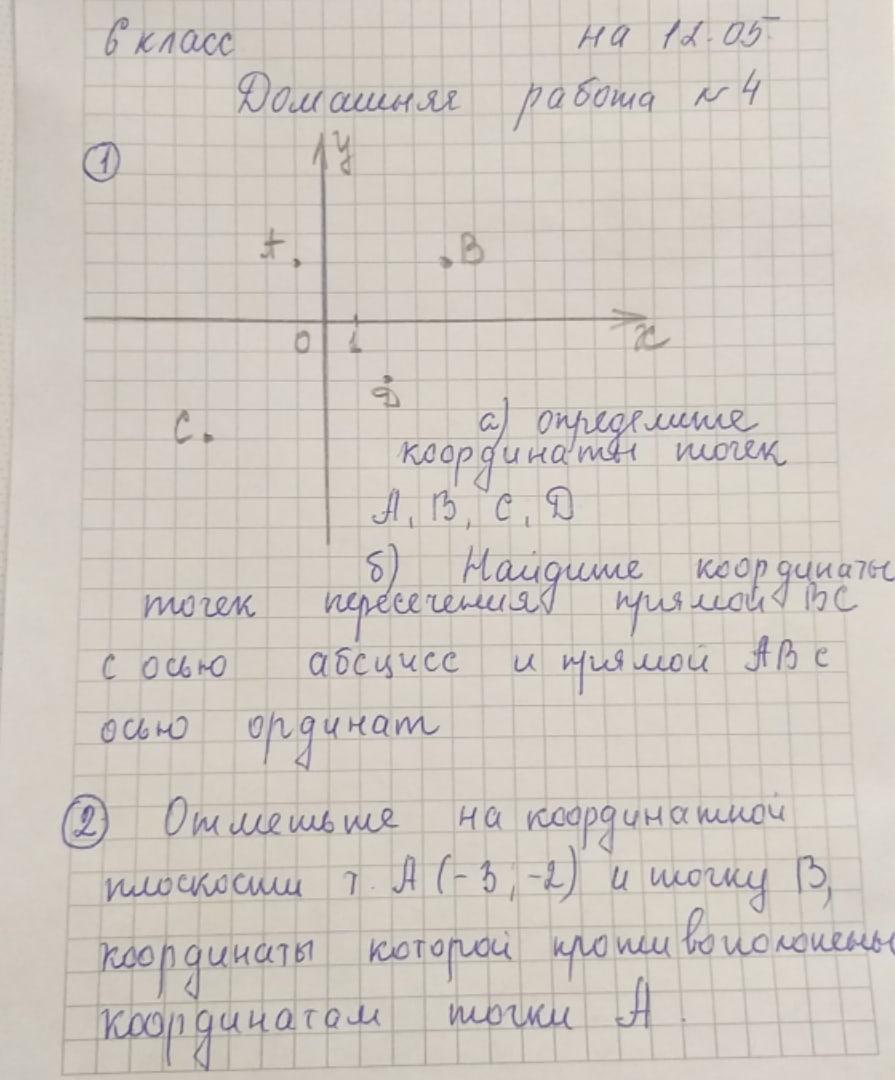 6 класс на 12.05
Домашняя работа № 4
1 y
A B
0 1 x
D
C а) определите
координаты точек
A, B, C, D
б) Найдите координаты
точек пересечения прямой BC
с осью абсцисс и прямой AB с
осью ординат
2 Отметьте на координатной
плоскости т. A (-3; -2) и точку B,
координаты которой противоположены
координатам точки A.